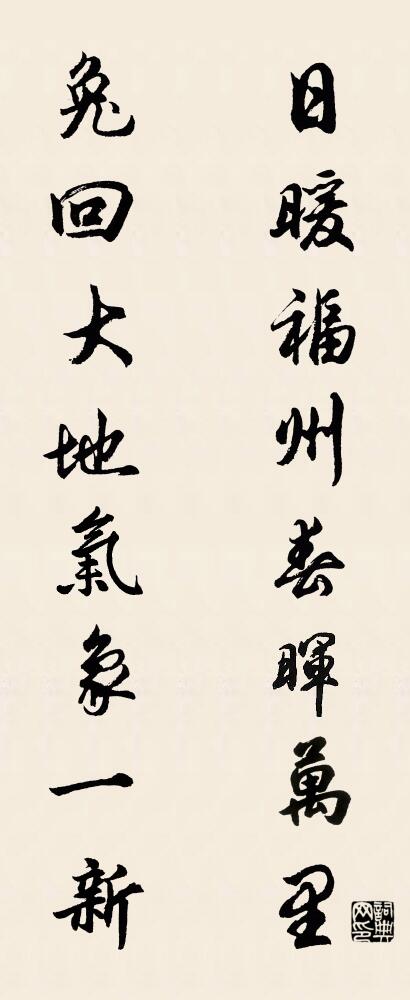 日暖福州春暉萬里
兔回大地氣象一新
詞典网印